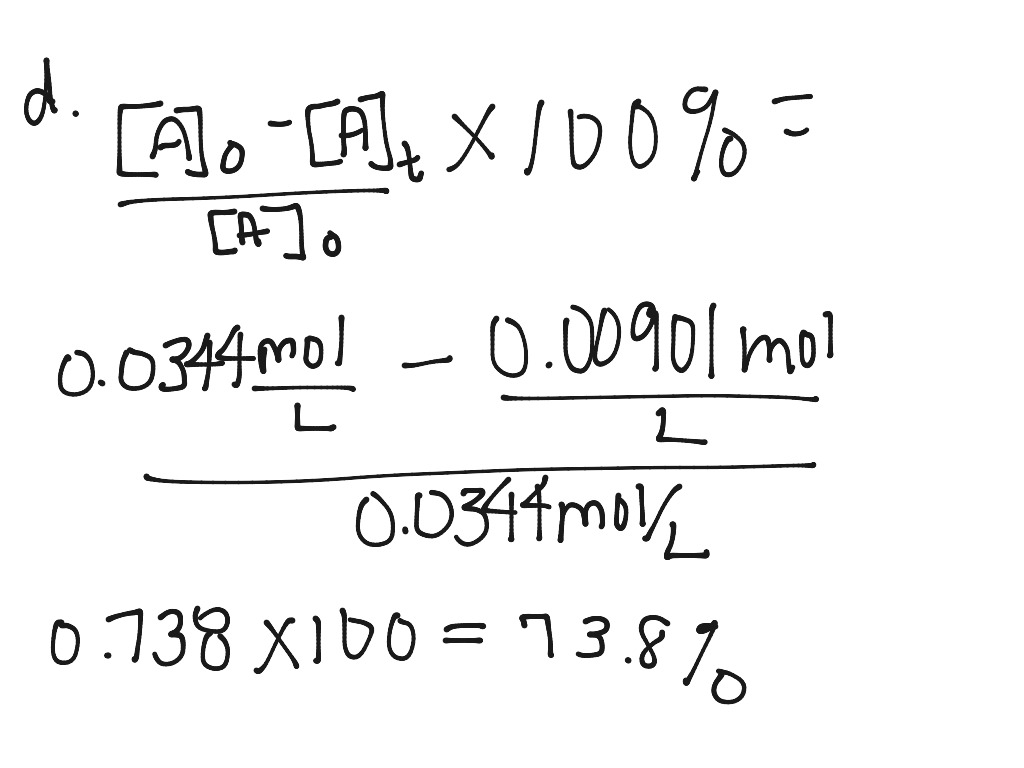 d. [A]₀ - [A]ₜ × 100% =
[A]₀
0.0344 mol - 0.00901 mol
L L
0.0344 mol/L
0.738 × 100 = 73.8%